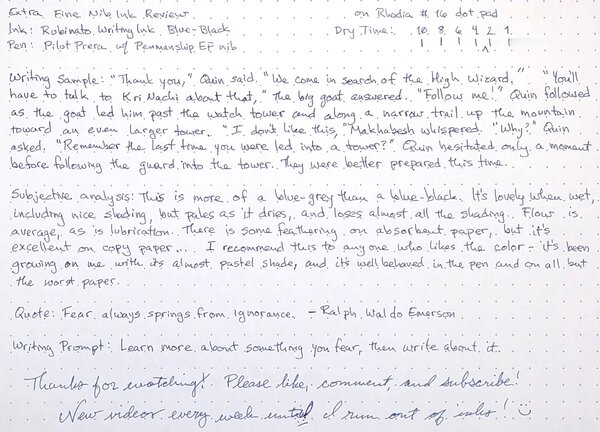 Extra Fine Nib Ink Review on Rhodia #16 dot pad
Ink: Rubinato Writing Ink, Blue-Black Dry Time: 10 8 6 4 2 1
Pen: Pilot Prera w/ Penmanship EF nib
Writing Sample: "Thank you," Quin said. "We come in search of the High Wizard." "You'll
have to talk to Kri Nachi about that," the big goat answered. "Follow me!" Quin followed
as the goat led him past the watch tower and along a narrow trail up the mountain
toward an even larger tower. "I don't like this," Makhabesh whispered. "Why?" Quin
asked. "Remember the last time you were led into a tower?" Quin hesitated only a moment
before following the guard into the tower. They were better prepared this time.
Subjective analysis: This is more of a blue-grey than a blue-black. It's lovely when wet,
including nice shading, but pales as it dries, and loses almost all the shading. Flow is
average, as is lubrication. There is some feathering on absorbent paper, but it's
excellent on copy paper... I recommend this to anyone who likes the color - it's been
growing on me with its almost pastel shade, and it's well behaved in the pen and on all but
the worst paper.
Quote: Fear always springs from ignorance. - Ralph Waldo Emerson
Writing Prompt: Learn more about something you fear, then write about it.
Thanks for watching! Please like, comment, and subscribe!
New videos every week until I run out of inks! :)